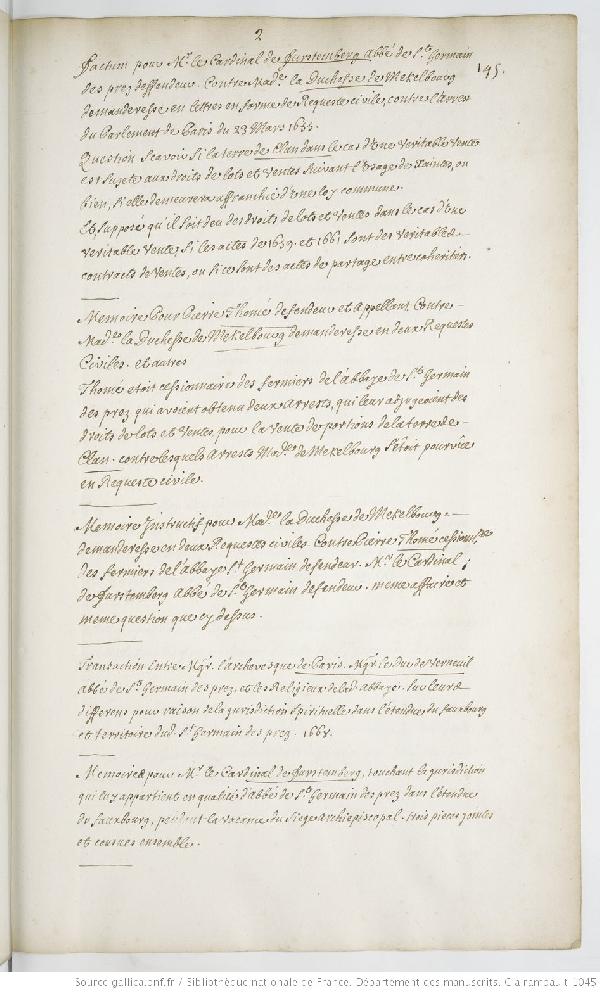 2
195.
Factum pour Mr. le Cardinal de Furstemberg Abbé de St. Germain
des prez deffendeur. Contre Made. la Duchesse de Mekelbourg
demanderesse en lettres en forme de Requeste civile, contre l'arrest
du Parlement de Paris du 23 Mars 1695.
Question scavoir si la terre de Clan dans le cas d'une veritable vente
est sujete aux droits de lots et ventes suivant l'usage de Saintes, ou
bien, si elle demeurera affranchie d'une loy commune.
Et supposé qu'il soit deu des droits de lots et ventes dans le cas d'une
veritable vente, si les actes de 1659. et 1661 sont des veritables
contracts de ventes, ou si ce sont des actes de partage entre coheritiers.
Memoire Pour Pierre Thomé defendeur et Appellant Contre
Made. la Duchesse de Mekelbourg demanderesse en deux Requestes
Civiles. et autres
Thomé etoit cessionnaire des fermiers de l'abbaye de St. Germain
des prez qui avoient obtenu deux Arrests, qui leur adjugeoient des
droits de lots et ventes, pour la vente de portions de la terre de
Clan. contre lesquels Arrests Made. de Mekelbourg s'etoit pourvüe
en Requeste civile.
Memoire Instructif pour Made. la Duchesse de Mekelbourg
demanderesse en deux Requestes civiles. Contre Pierre Thomé cessionre.
des fermiers de l'abbaye St. Germain defendeur. Mr. le Cardinal
de Furstemberg Abbé de St. Germain defendeur. meme affaire et
meme question que cy dessus.
Transaction Entre Mgr. l'archevesque de Paris. Mgr. le Duc de Verneuil
abbé de St. Germain des prez, et les Religieux de lad. abbaye. sur leurs
differens pour raison de la jurisdiction spirituelle dans l'etendue du fauxbourg
et territoire dud. St. Germain des prez. 1668.
Memoires pour Mr. le Cardinal de Furstemberg, touchant la jurisdiction
qui luy appartient en qualité d'abbé de St. Germain des prez dans l'etendue
du fauxbourg, pendant la vacance du Siege Archiepiscopal. trois pieces jointes
et cousues ensemble.
Source gallica.bnf.fr / Bibliothèque nationale de France. Département des manuscrits. Clairambault 1045